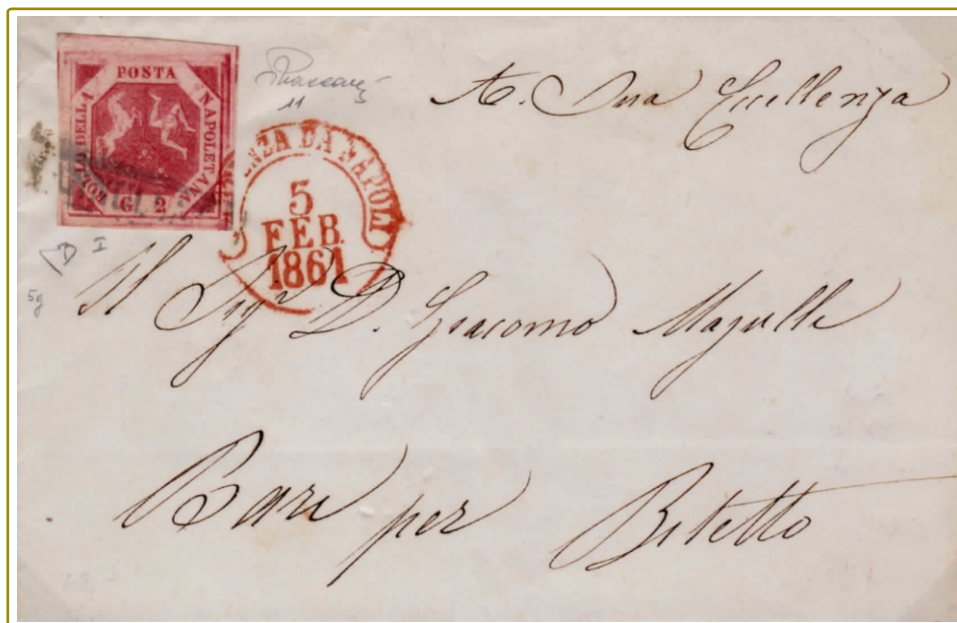 BOLLO DELLA POSTA NAPOLETANA
G. 2
11
A. Sua Eccellenza
ENZA DA NAPOLI
5
FEB.
1861
I
5g
Il Sigr D. Giacomo
Bari per Bitetto